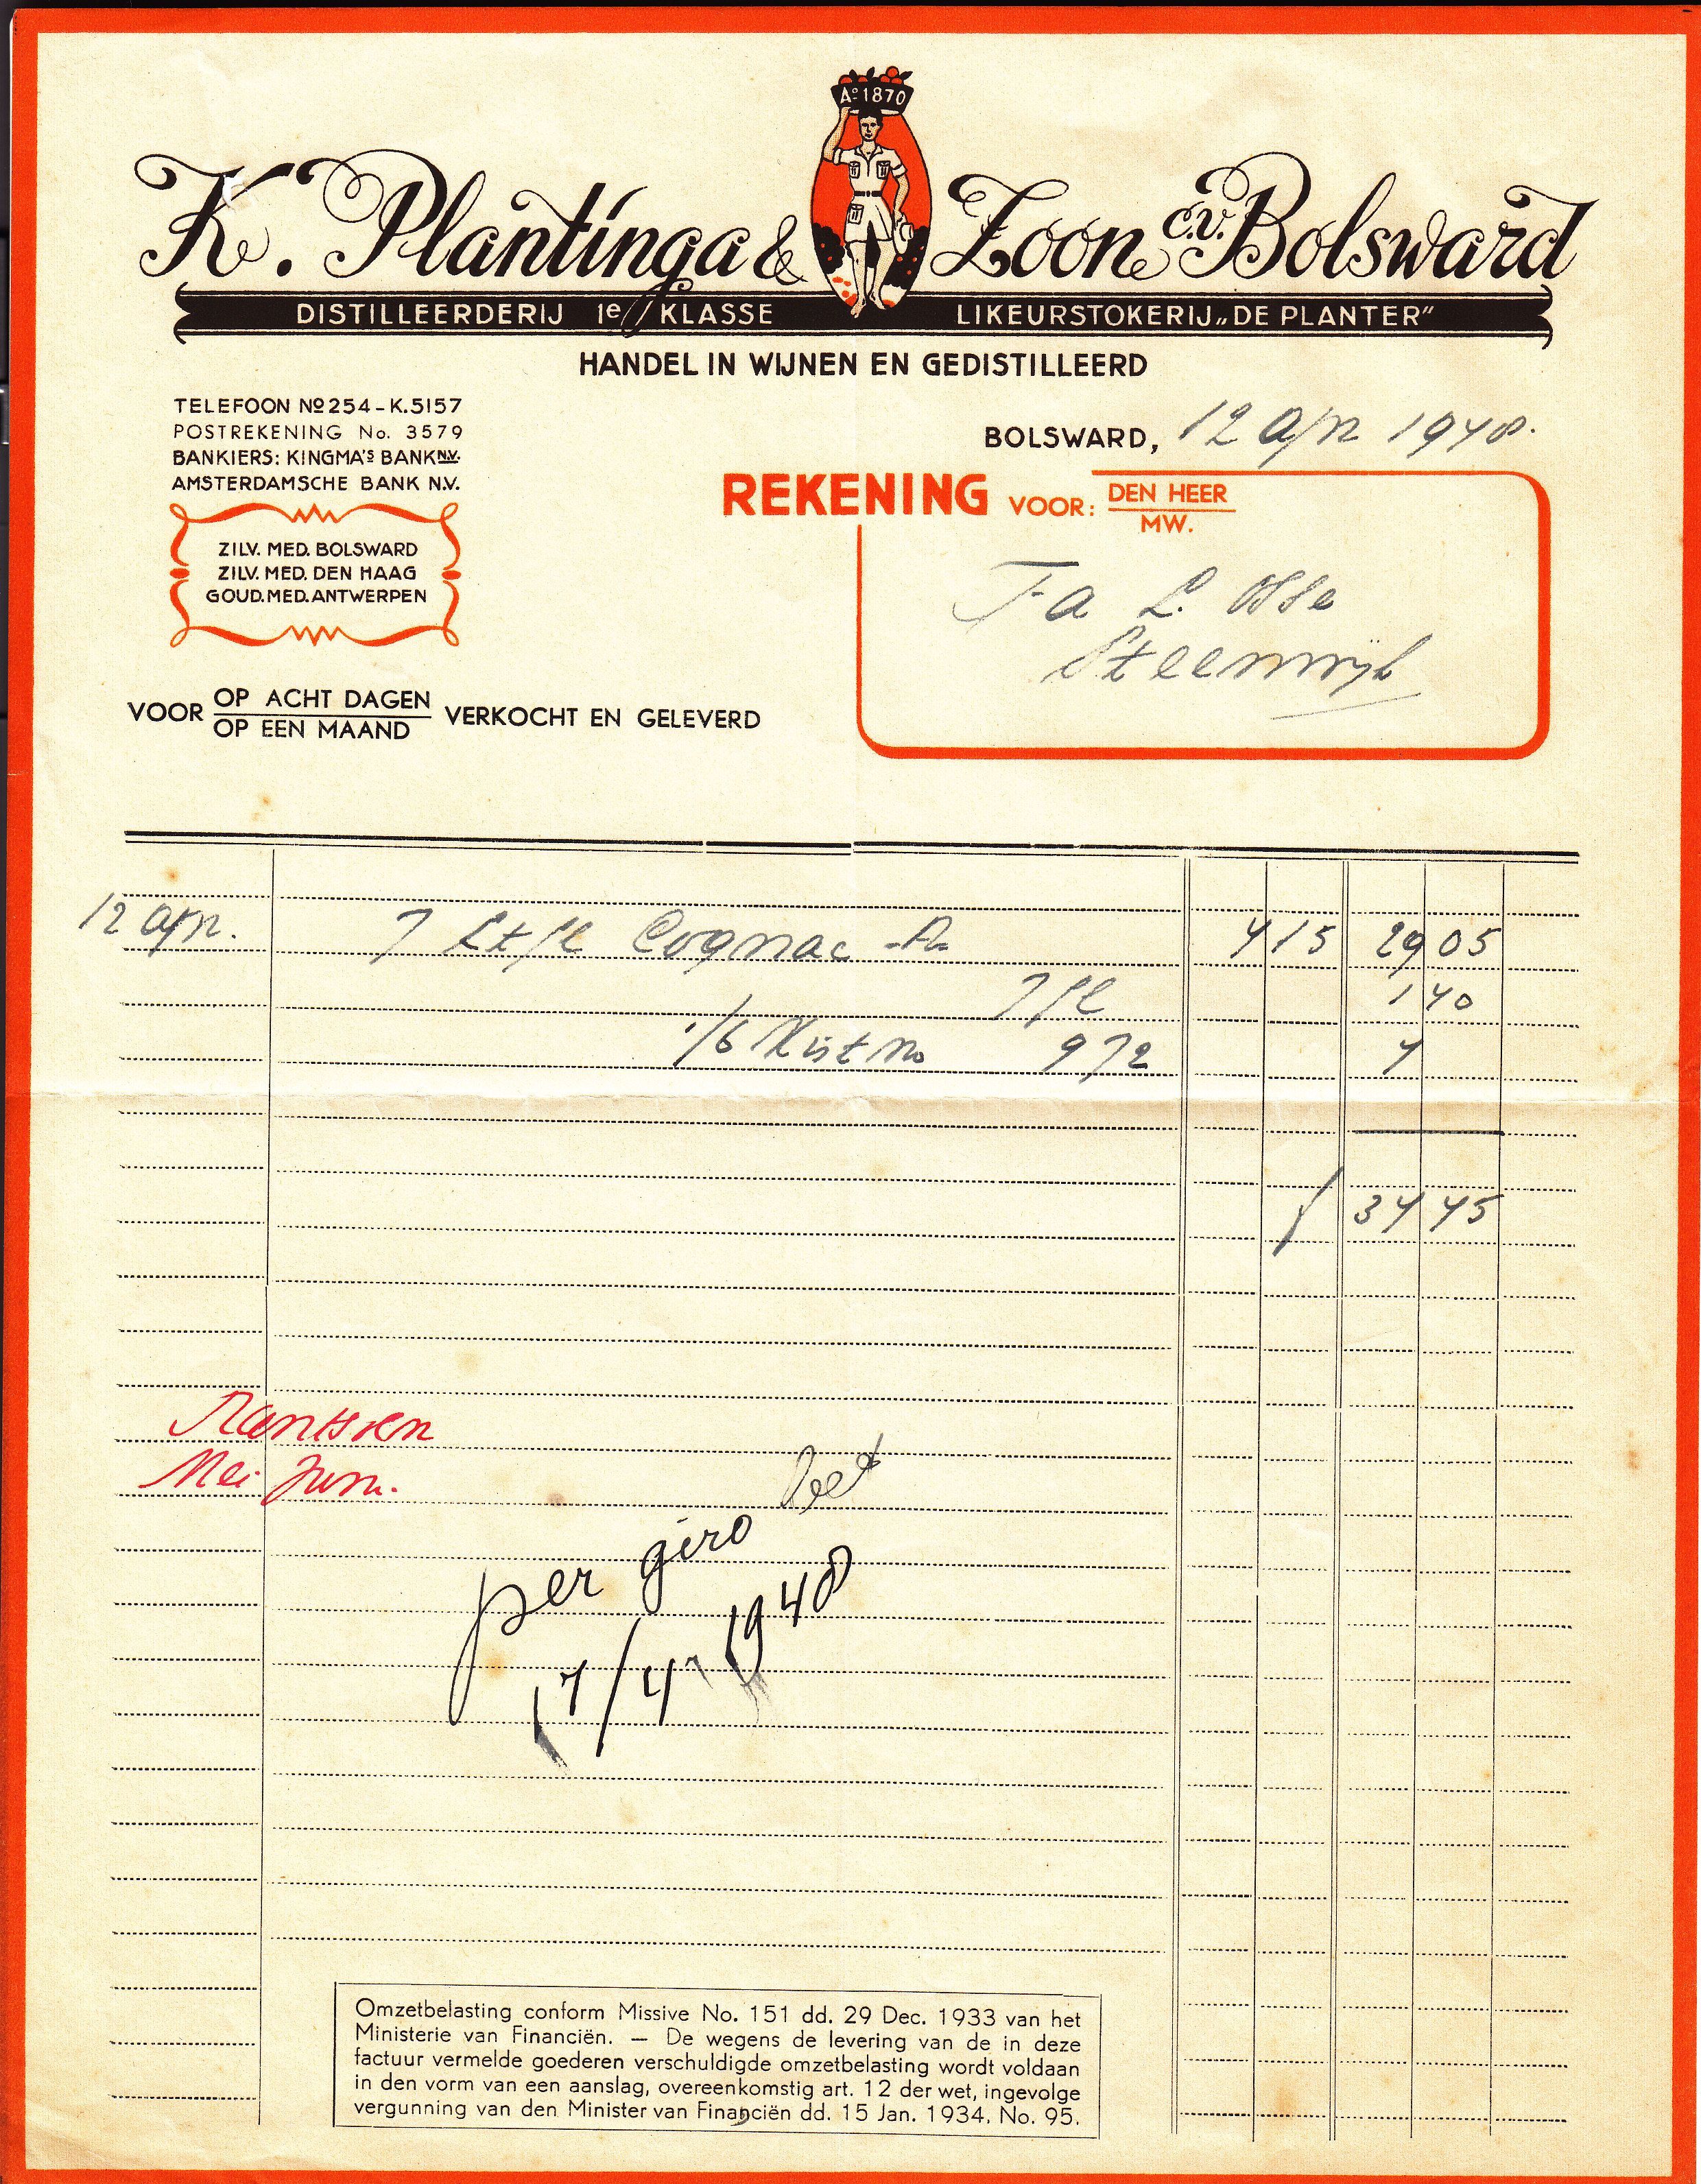 Aº 1870
K. Plantinga & Zoon C.V. Bolsward
DISTILLEERDERIJ 1e KLASSE LIKEURSTOKERIJ „DE PLANTER"
HANDEL IN WIJNEN EN GEDISTILLEERD
TELEFOON Nº 254 - K.5157
POSTREKENING No. 3579
BANKIERS: KINGMA'S BANK N.V.
AMSTERDAMSCHE BANK N.V.
BOLSWARD, 12 apr 1948.
REKENING VOOR: DEN HEER
MW.
ZILV. MED. BOLSWARD
ZILV. MED. DEN HAAG
GOUD. MED. ANTWERPEN
Fa L. Osse
Steenwijk
VOOR OP ACHT DAGEN
OP EEN MAAND VERKOCHT EN GELEVERD
12 apr. 7 Ltfl Cognac 4 15 29 05
7 fl 1 40
1/6 Kist no 972 4
f 34 45
Mei Juni.
per giro bet
17/4 1948
Omzetbelasting conform Missive No. 151 dd. 29 Dec. 1933 van het
Ministerie van Financiën. — De wegens de levering van de in deze
factuur vermelde goederen verschuldigde omzetbelasting wordt voldaan
in den vorm van een aanslag, overeenkomstig art. 12 der wet, ingevolge
vergunning van den Minister van Financiën dd. 15 Jan. 1934, No. 95.